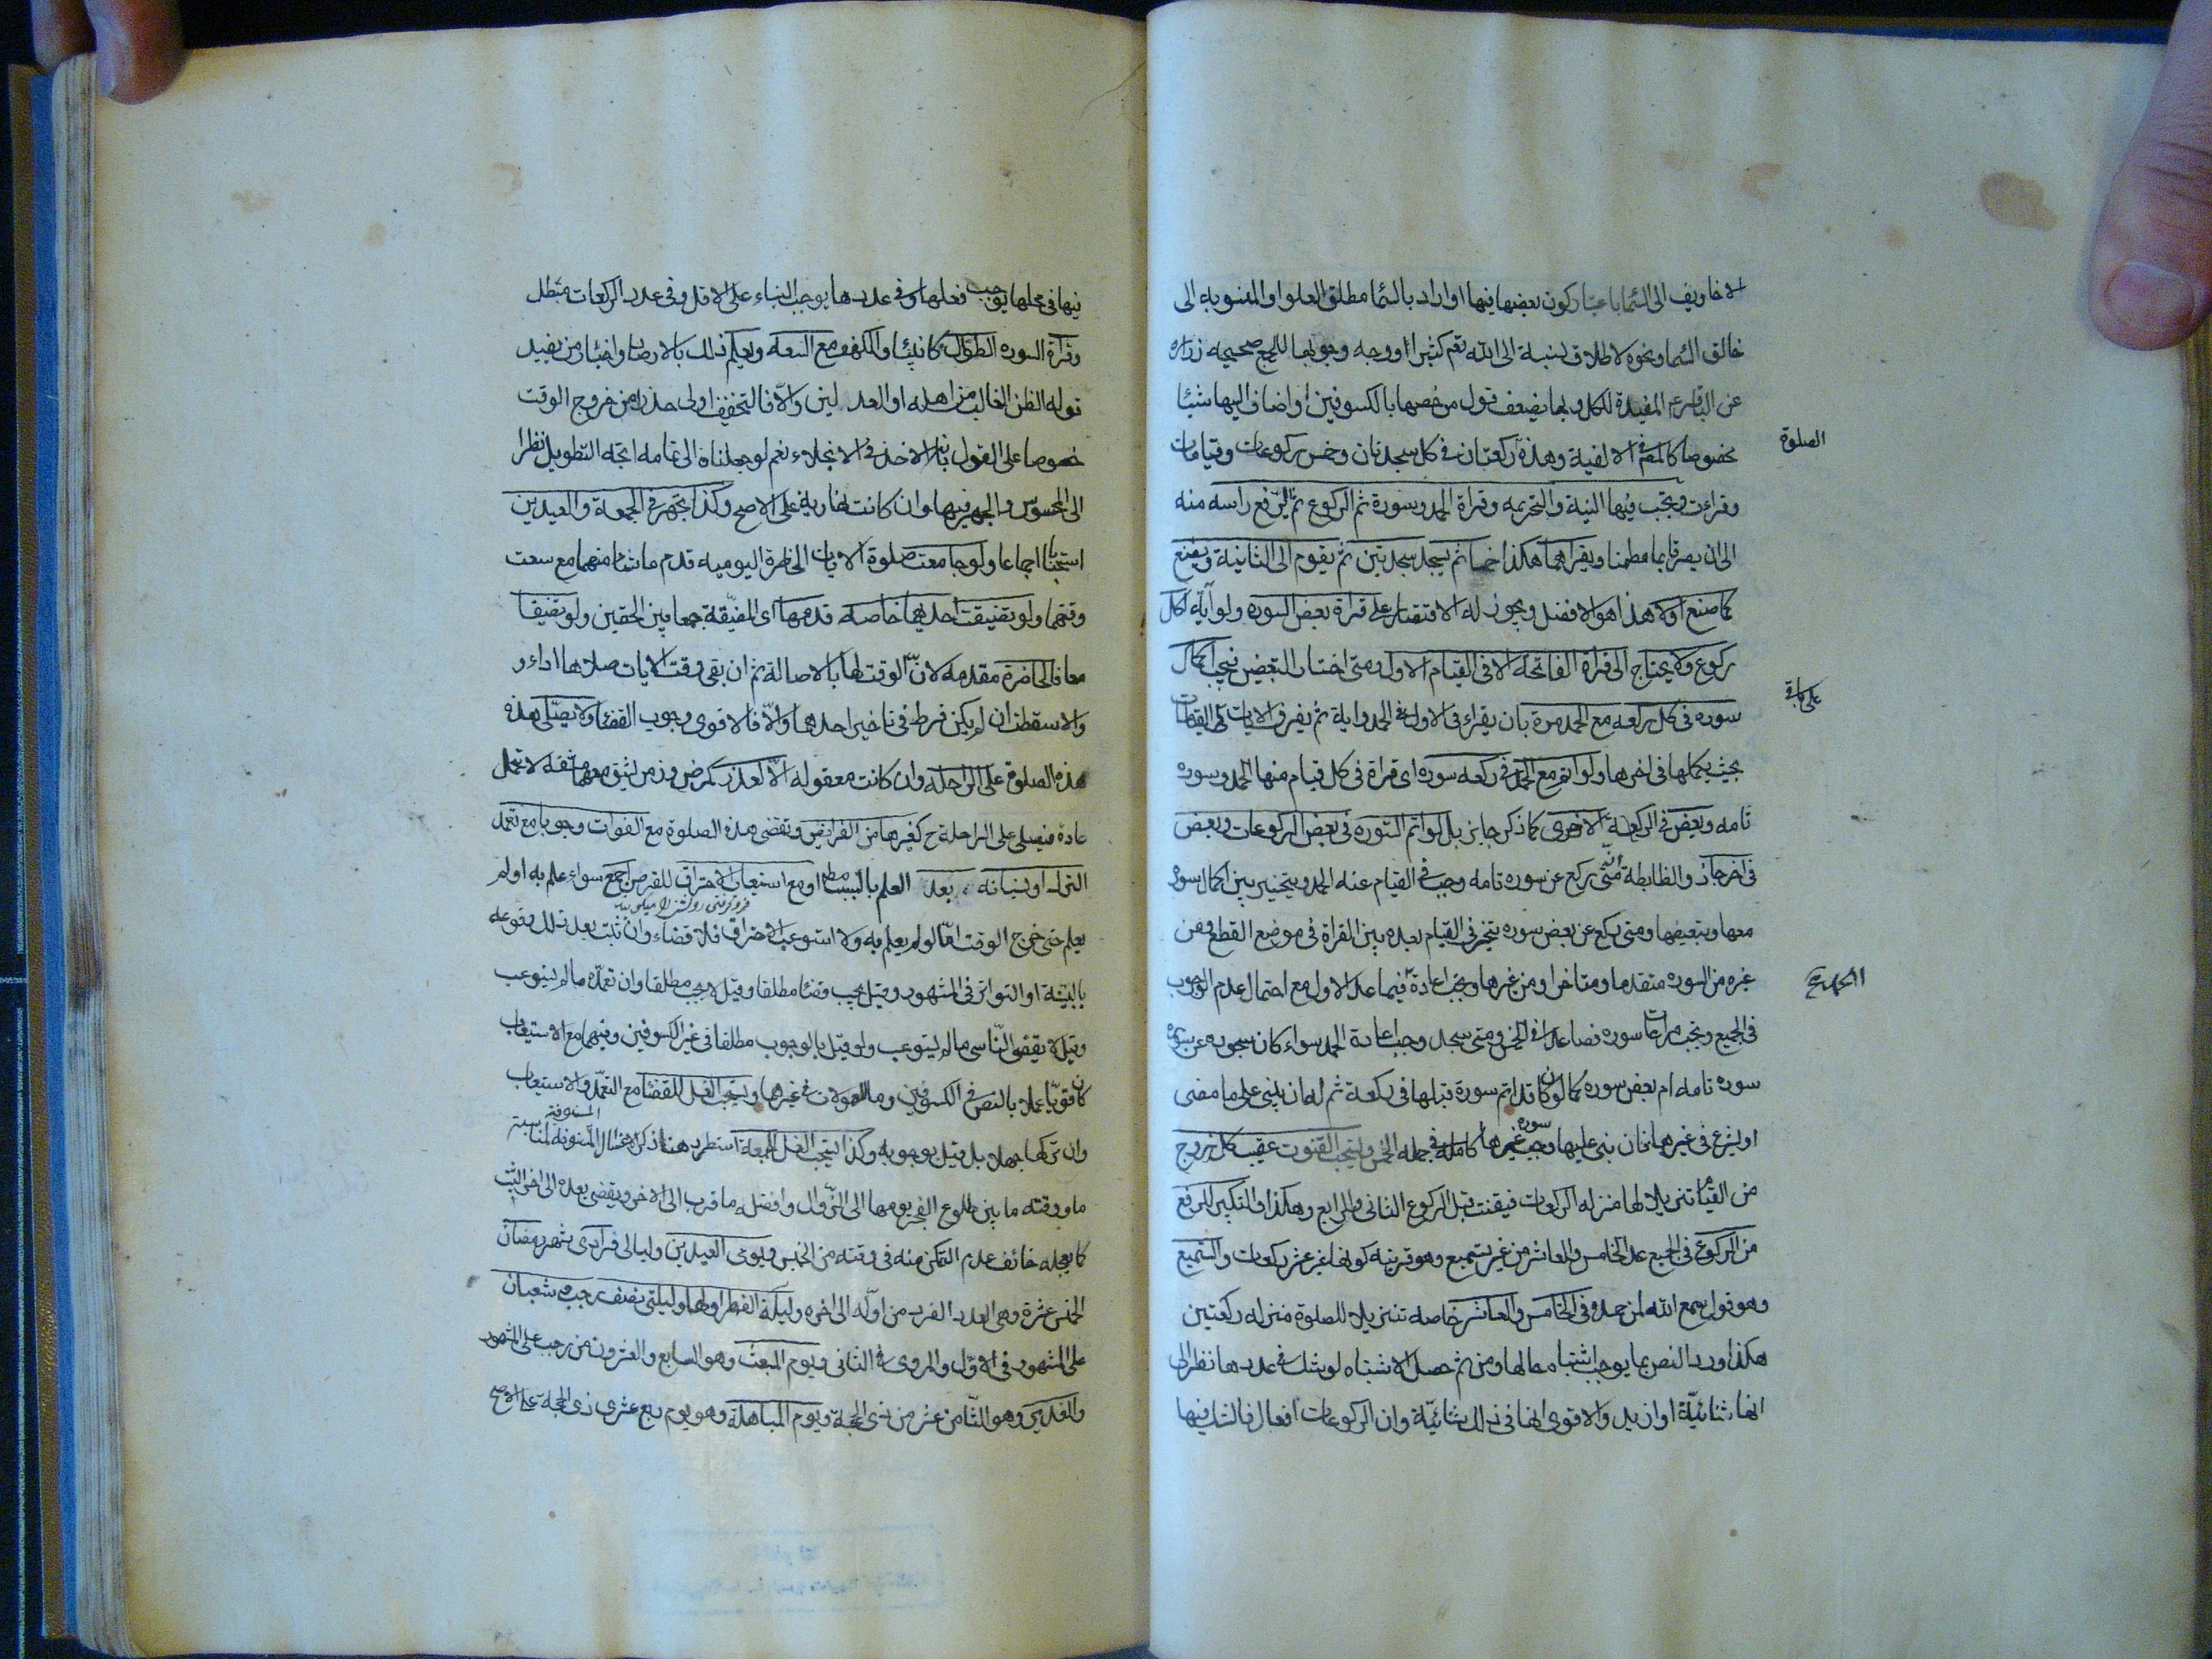 الاخاويف الى السما باعتبار كون بعضها فيها او اراد بالسما مطلق العلو او المنسوبه الى
خالق السما ونحوه لاطلاق نسبة الى الله تعم كثيرا ووجه وجوبها للجمع صحيحه زراره
عن الباقر ع المفيدة للكل وبها يضعف قول من خصها بالكسوفين او اضاف اليها شيئا
مخصوصا كالمص في الالفية وهذه ركعتان في كل سجدتان وخمس ركوعات وقيامات
الصلوة
وقراءت ويجب فيها النية والتحريمه وقراة الحمد وسورة ثم الركوع ثم الرفع راسه منه
الى ان يصر قايما مطمئنا ويقراهما هكذا خمسا ثم يسجد سجدتين ثم يقوم الى الثانية ويصنع
كما صنع اولا هذا هو الافضل ويجوز له الاقتصار على قراة بعض السوره ولو آية لكل
ركوع ولا يحتاج الى قراة الفاتحه الا في القيام الاول ومتى اختار التبعيض يجب اكمال
سوره في كل ركعه مع الحمد مرة بان يقراء في الاول الحمد واية ثم يفرق الايات على القيامات
على باقي
بحيث يكملها في اخرها ولو اتم مع الحمد في ركعه سوره اى قراة في كل قيام منها الحمد وسوره
تامه وبعض في الركعة الاخرى كما ذكر جايز بل لو اتم السوره في بعض الركوعات وبعض
في اخر جاز والظابطة انه متى ركع عن سوره تامه وجب في القيام عنه الحمد ويتخير بين اكمال سوره
معها وتبعيضها ومتى ركع عن بعض سوره تخير في القيام بعده بين القراة في موضع القطع ومن
غره من السوره متقدما ومتاخرا ومن غيرها ويجب اعادة فيما عدا الاول مع احتمال عدم الوجوب
الحمد
في الجميع ويجب مراعات سوره فصاعدا في الخمس ومتى سجد وجب اعادة الحمد سواء كان سجوده عن سوره
سوره تامه ام بعض سوره كما لو كان قد اتم سورة قبلها في ركعة ثم له ان يبنى على ما مضى
او يشرع في غيرها فان بنى عليها وجب سوره غيرها كامله في جملة الخمس ويستحب القنوت عقيب كل زوج
من القيامات تنزيلا لها منزله الركعات فيقنت قبل الركوع الثانى والرابع وهكذا والتكبير للرفع
من الركوع في الجميع عدا الخامس والعاشر من غير تسميع وهو قرينه كونها غير عشر ركعات والتسميع
وهو قول سمع الله لمن حمده في الخامس والعاشر خاصه تنزيلا للصلوة منزله ركعتين
هكذا ورد النص بما يوجب اشتباه حالها ومن ثم حصل الاشتباه لو شك في عددها نظرا الى
انها ثنائيّة او ازيد والاقوى انها في ذلك ثنائيّة وان الركوعات افعال فالشك فيها
فيها في محلها يوجب فعلها وفي عددها يوجب البناء على الاقل وفي عدد الركعات مبطل
وقراة السوره الطوال كالانبياء والكهف مع السعه ويعلم ذلك بالارصاد واخبار من يفيد
قوله الظن الغالب من اهله او العدلين والا فالتخفيف اولى حذرا من خروج الوقت
خصوصا على القول بانه الاخذ في الانجلاء نعم لو جعلناه الى تمامه اتجه التطويل نظرا
الى المحسوس والجهر فيها وان كانت نهارية على الاصح وكذا يجهر في الجمعة والعيدين
استحبابا اجماعا ولو جامعت صلوة الايات الحاضرة اليوميه قدم ما شاء منهما مع سعت
وقتهما ولو تضيقت احديهما خاصه قدمها اى المضيّقة جمعا بين الحقين ولو تضيقا
معا فالحاضرة مقدمه لانّ الوقت لها بالاصالة ثم ان بقى وقت الايات صلاها اداء و
والا سقطت ان لم يكن فرط في تاخير احدهما والّا فالاقوى وجوب القضاء ولا يصلّى هذه
هذه الصلوة على الراحله وان كانت معقوله الّا لعذر كمرض وزمن يشق معهما مشقه لا تحمل
عادة فيصلى على الراحلة ح كغيرها من الفرائض وتقضى هذه الصلوة مع الفوات وجوبا مع تعمد
الترك او نسيانه بعد العلم بالسبب مطلقا او مع استيعاب الاحتراق للقرص اجمع سواء علم به او لم
يعلم حتى خرج الوقت امّا لو لم يعلم به ولا استوعب الاحتراق فلا قضاء وان ثبت بعد ذلك وقوعه
بالبيّنة او التواتر في المشهور وقيل يجب قضاء مطلقا وقيل لا يجب مطلقا وان تعمّده ما لم يستوعب
وقيل لا يقضى النّاسى ما لم يستوعب ولو قيل بالوجوب مطلقا في غير الكسوفين وفيهما مع الاستيعاب
كان قويّا عملا بالنص في الكسوفين وما العمومات في غيرها ويستحب الغسل للقضاء مع التعمّد والاستيعاب
وان تركها جهلا بل قيل بوجوبه وكذا يستحب الغسل للجمعة استطرد هنا ذكر الاغسال المسنونه لمناسبة
المسنونة
ما ووقته ما بين طلوع الفجر يومها الى الزّوال وافضله ما قرب الى الاخر ويقضى بعده الى اخر السّبت
كما يعجله خائف عدم التمكن منه في وقته من الخميس ويومى العيدين وليالى فرادى شهر رمضان
الخمس عشرة وهى العدد الفرد من اوّله الى اخره وليلة الفطر اولها وليلتى نصف رجب وشعبان
على المشهور في الاوّل والمروى في الثانى ويوم المبعث وهو السابع والعشرون من رجب على المشهور
والغدير وهو الثّامن عشر من ذى الحجة ويوم المباهلة وهو يوم ربع عشرى ذى الحجة على الاصح